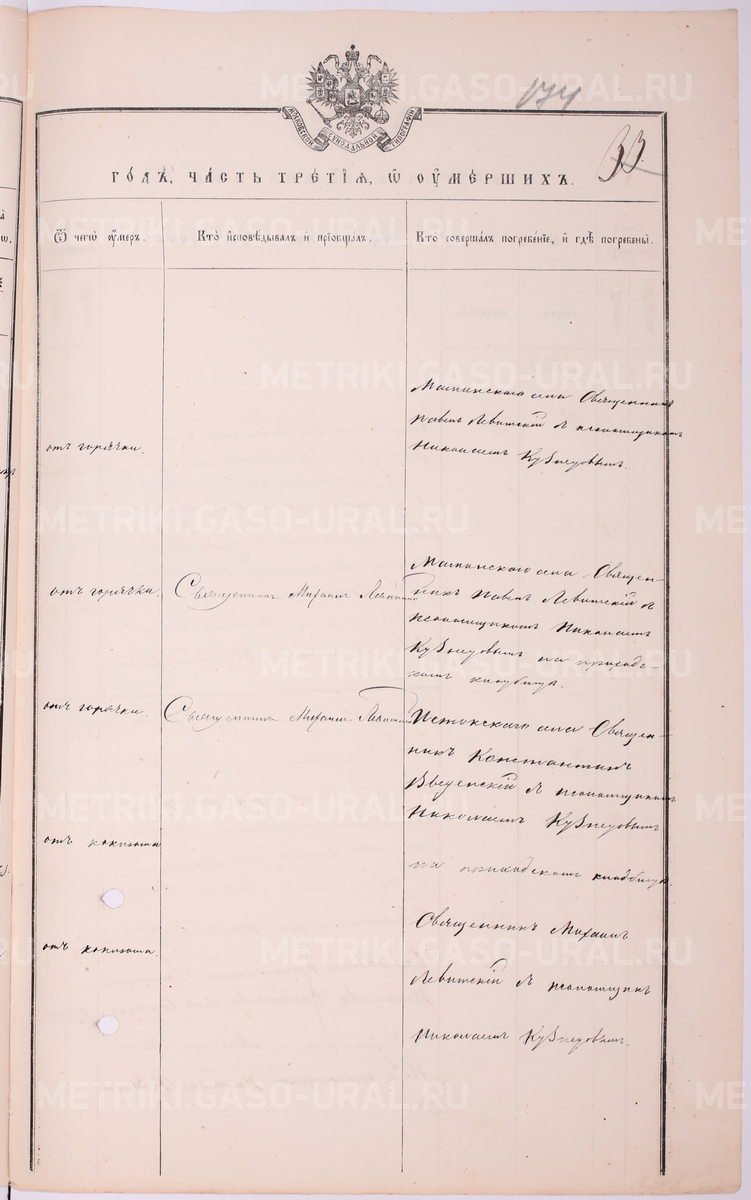 174
33.
МОСКОВСКОЙ СѴНОДАЛЬНОЙ ТИПОГРАФІИ
ГО́ДЪ, ЧА́СТЬ ТРЕ́ТІѦ, Ѿ ОУМЕ́РШИХЪ.
Ѿ чегѡ̀ оу́меръ.
Кто̀ и҆сповѣ́дывалъ и҆ прїѡбща́лъ.
Кто̀ соверша́лъ погребе́нїе, и҆ гдѣ̀ погребены̀.
отъ горячки.
Маминскаго села Священникъ
Павелъ Левитскій съ псаломщикомъ
Николаемъ Кузнецовымъ.
отъ горячки.
Священникъ Михаилъ Левитскій
Маминскаго села Священ-
никъ Павелъ Левитскій съ
псаломщикомъ Николаемъ
Кузнецовымъ на приходс-
комъ кладбищѣ.
отъ горячки.
Священникъ Михаилъ Левитскій
Истокскаго села Священ-
никъ Константинъ
Введенскій съ псаломщикомъ
Николаемъ Кузнецовымъ
на приходскомъ кладбищѣ.
отъ коклюша
отъ коклюша.
Священникъ Михаилъ
Левитскій съ псаломщик
Николаемъ Кузнецовымъ.
METRIKI.GASO-URAL.RU